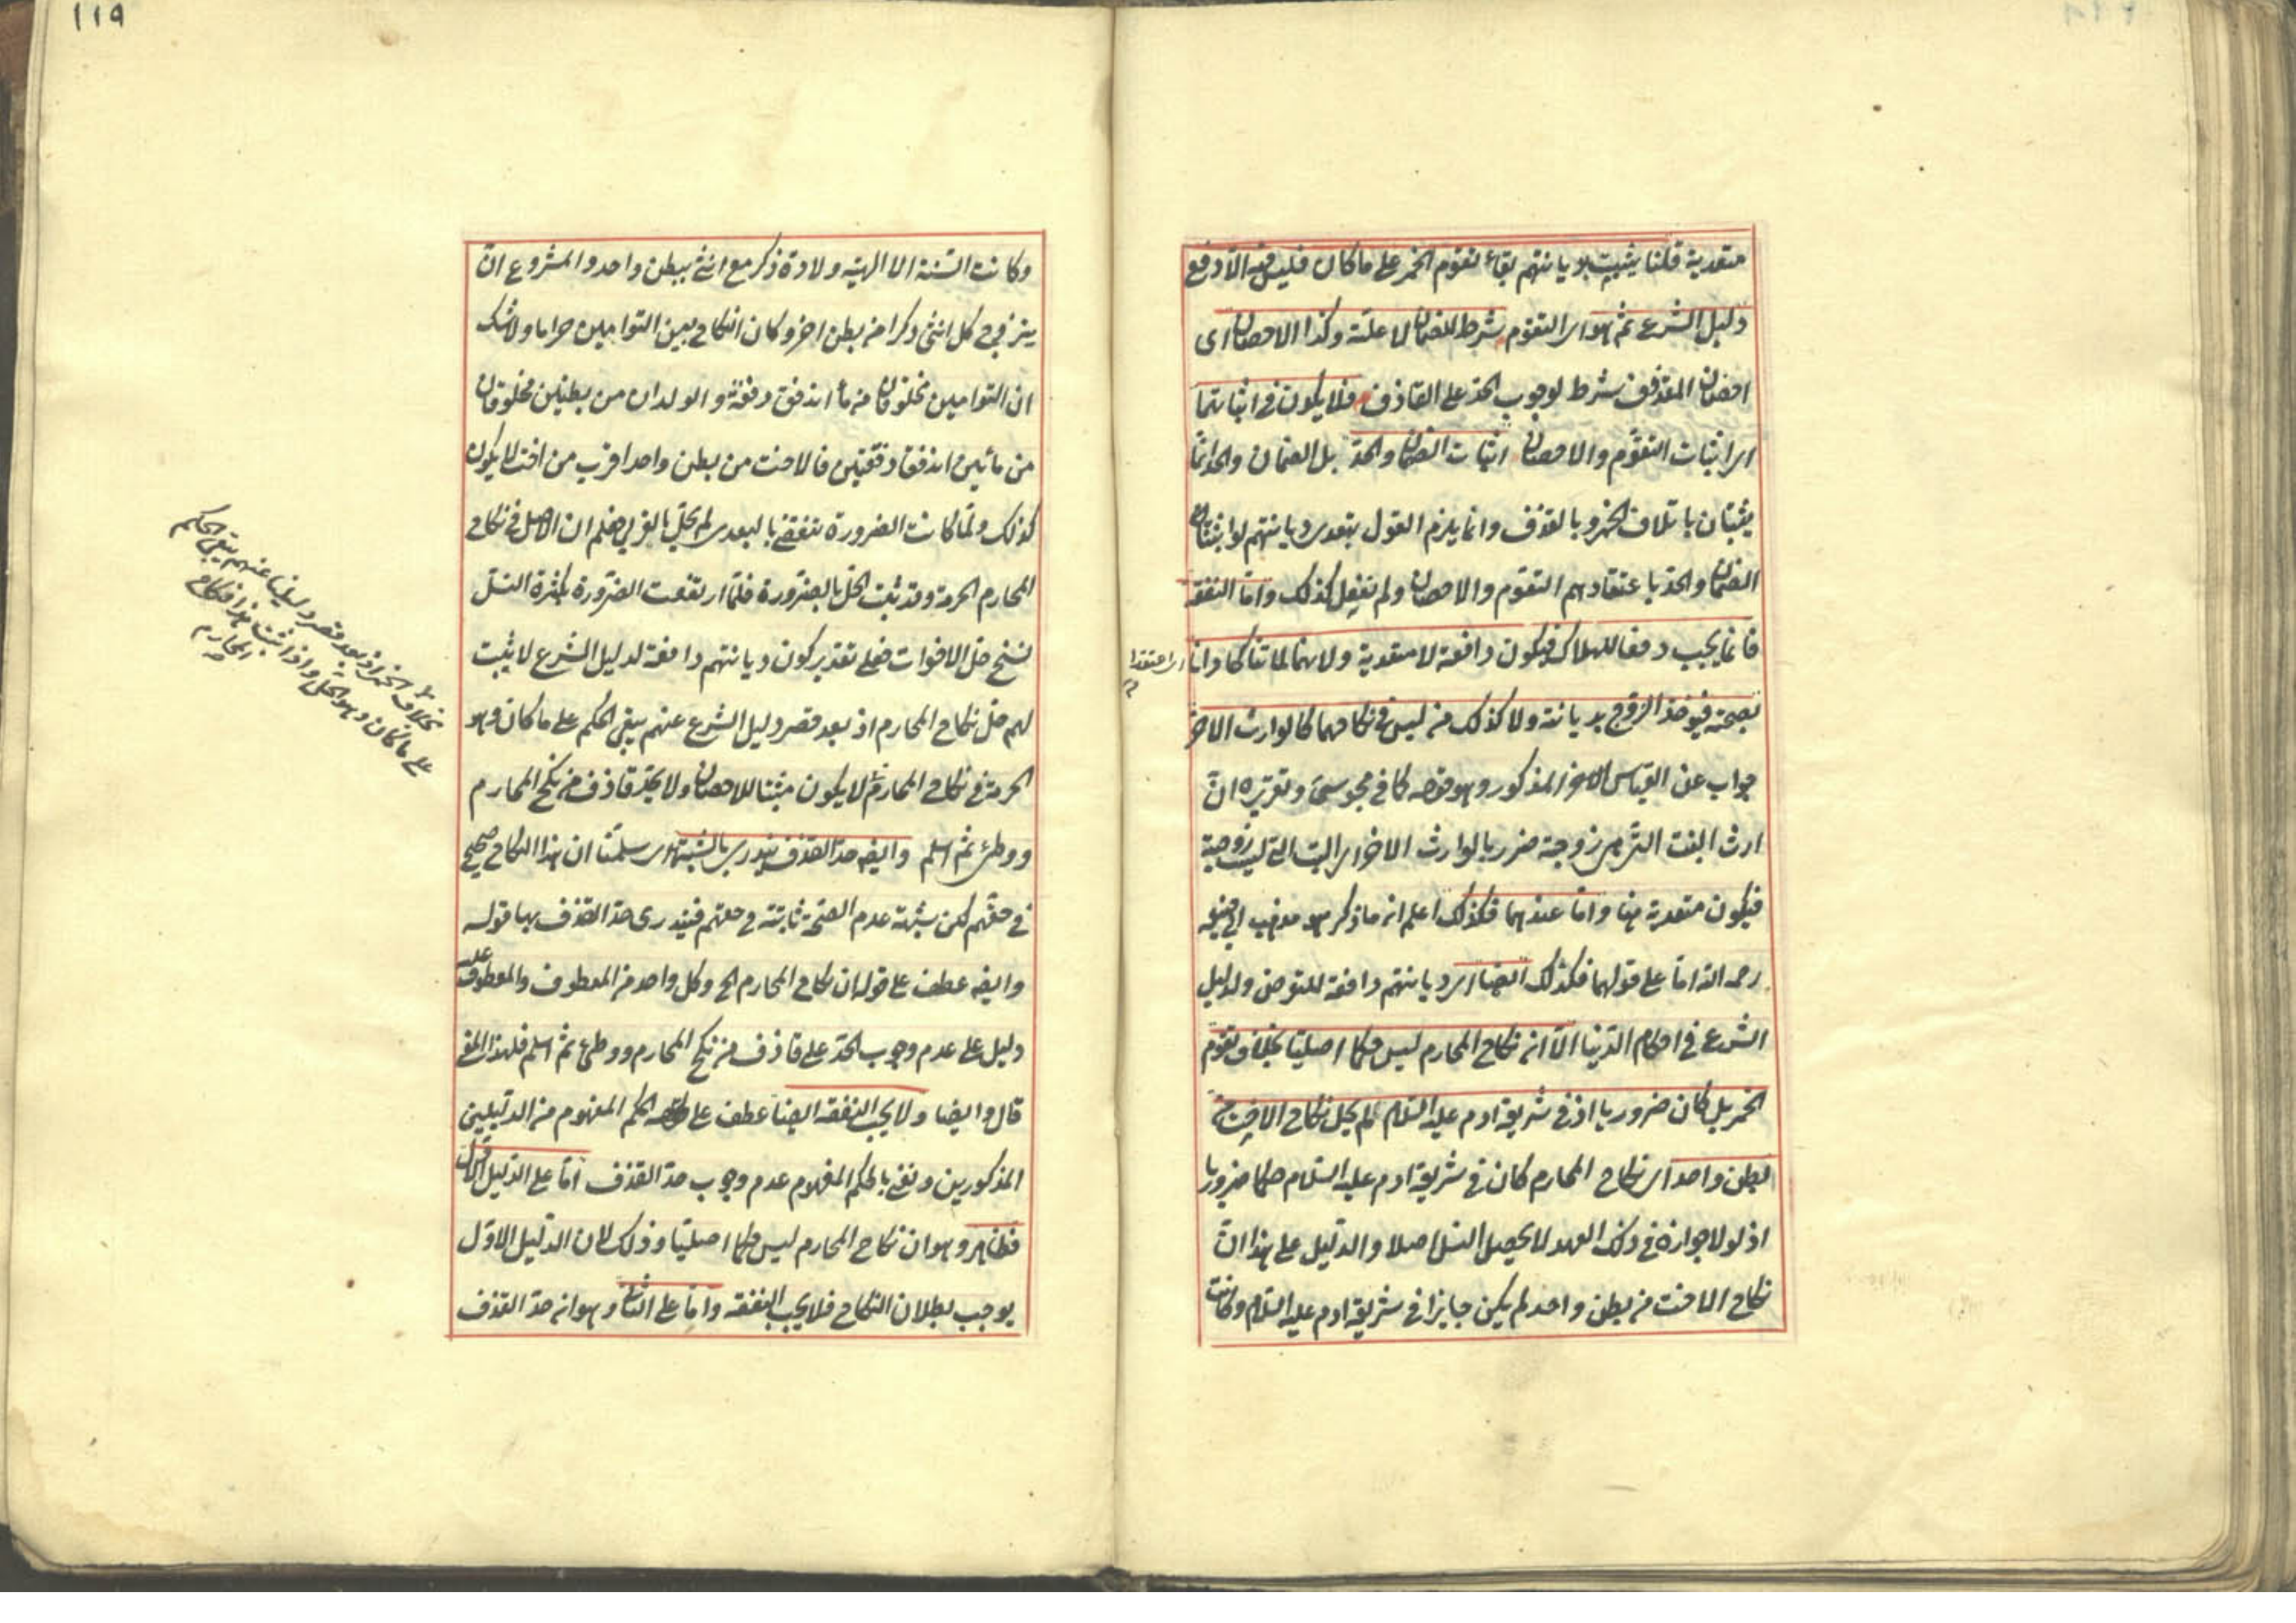 متعدية قلنا يثبت بديانتهم بقاء تقوم الخمر على ما كان فليس فيه الا دفع
دليل الشرع ثم هو اى التقوم شرط للضمان لا علته وكذا الاحصان اى
احصان المقذوف شرط لوجوب الحد على القاذف فلا يكون فى اثباتهما
اى اثبات التقوم والاحصان اثبات الضمان والحد بل الضمان والحد انما
يثبتان باتلاف الخمر وبالقذف وانما يلزم القول بتعدى ديانتهم لو اثبتنا
الضمان والحد باعتقادهم التقوم والاحصان ولم نفعل كذلك واما النفقة
فانما يجب دفعا للهلاك فيكون دافعة لا متعدية ولانهما لما تناكحا دانا
اى اعتقدا
بصحته فيؤخذ الزوج بديانته ولا كذلك من ليس فى نكاحهما كالوارث الاخر
جواب عن القياس الاخر المذكور وهو قوله كما فى مجوسى وتقريره ان
ارث البنت التى هى زوجة ضرر بالوارث الاخر اى البنت التى ليست زوجة
فيكون متعدية هنا واما عندهما فكذلك اعلم ان ما ذكر هو مذهب ابى حنيفة
رحمه الله اما على قولهما فكذلك ايضا اى ديانتهم دافعة للتعرض ولدليل
الشرع فى احكام الدنيا الا انه نكاح المحارم ليس حكما اصليا بخلاف تقوم
الخمر بل كان ضروريا اذ فى شريعة ادم عليه السلام لم يحل نكاح الاخت من
بطن واحد اى نكاح المحارم كان فى شريعة ادم عليه السلام حكما ضروريا
اذ لولا جوازه فى ذلك العهد لا يحصل النسل اصلا والدليل على هذا ان
نكاح الاخت من بطن واحد لم يكن جايزا فى شريعة ادم عليه السلام وكانت
١١٩
وكانت السنة الالهية ولادة ذكر مع انثى ببطن واحد والمشروع ان
يتزوج كل انثى ذكرا من بطن اخر وكان النكاح بين التوامين حراما ولا شك
ان التوامين مخلوقان من ماء اندفق دفقة والولدان من بطنين مخلوقان
من مائين اندفقا دفقتين فالاخت من بطن واحد اقرب من اخت لا يكون
كذلك ولما كانت الضرورة تنقضى بالبعدى لم يحل بالقربى فعلم ان الاصل فى نكاح
المحارم الحرمة وقد ثبت الحل بالضرورة فلما ارتفعت الضرورة بكثرة النسل
نسخ حل الاخوات فعلى تقدير كون ديانتهم دافعة لدليل الشرع لا يثبت
لهم حل نكاح المحارم اذ بعد قصر دليل الشرع عنهم يبقى الحكم على ما كان وهو
الحرمة فى نكاح المحارم فلا يكون مثبتا للاحصان ولا يحد قاذف من نكح المحارم
ووطئ ثم اسلم وايضا حد القذف يندرى بالشبهة اى سلمنا ان هذا النكاح صحيح
فى حقهم لكن شبهة عدم الصحة ثابتة فى حقهم فيندرى حد القذف بها قوله
وايضا عطف على قوله ان نكاح المحارم الخ وكل واحد من المعطوف والمعطوف عليه
دليل على عدم وجوب الحد على قاذف من نكح المحارم ووطئ ثم اسلم فلهذا المعنى
قال وايضا ولا يجب النفقة ايضا عطف على الحكم المفهوم من الدليلين
المذكورين ونعنى بالحكم المفهوم عدم وجوب حد القذف اما على الدليل الاول
فظاهر وهو ان نكاح المحارم ليس حكما اصليا وذلك لان الدليل الاول
يوجب بطلان النكاح فلا يجب النفقة واما على الثانى وهو ان حد القذف
بخلاف الخمر اذ بعد قصر دليلنا عنهم يبقى الحكم
على ما كان وهو الحل واذا ثبت هذا فنكاح
المحارم